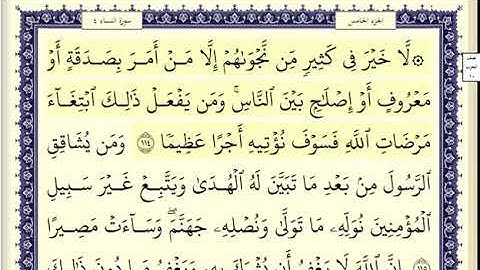 سورة النساء ٤
الجزء الخامس
۞ لَّا خَيْرَ فِى كَثِيرٍ مِّن نَّجْوَىٰهُمْ إِلَّا مَنْ أَمَرَ بِصَدَقَةٍ أَوْ
مَعْرُوفٍ أَوْ إِصْلَٰحٍۭ بَيْنَ ٱلنَّاسِ ۚ وَمَن يَفْعَلْ ذَٰلِكَ ٱبْتِغَآءَ
مَرْضَاتِ ٱللَّهِ فَسَوْفَ نُؤْتِيهِ أَجْرًا عَظِيمًا ١١٤ وَمَن يُشَاقِقِ
ٱلرَّسُولَ مِنۢ بَعْدِ مَا تَبَيَّنَ لَهُ ٱلْهُدَىٰ وَيَتَّبِعْ غَيْرَ سَبِيلِ
ٱلْمُؤْمِنِينَ نُوَلِّهِۦ مَا تَوَلَّىٰ وَنُصْلِهِۦ جَهَنَّمَ ۖ وَسَآءَتْ مَصِيرًا
١١٥ إِنَّ ٱللَّهَ لَا يَغْفِرُ أَن يُشْرَكَ بِهِۦ وَيَغْفِرُ مَا دُونَ ذَٰلِكَ